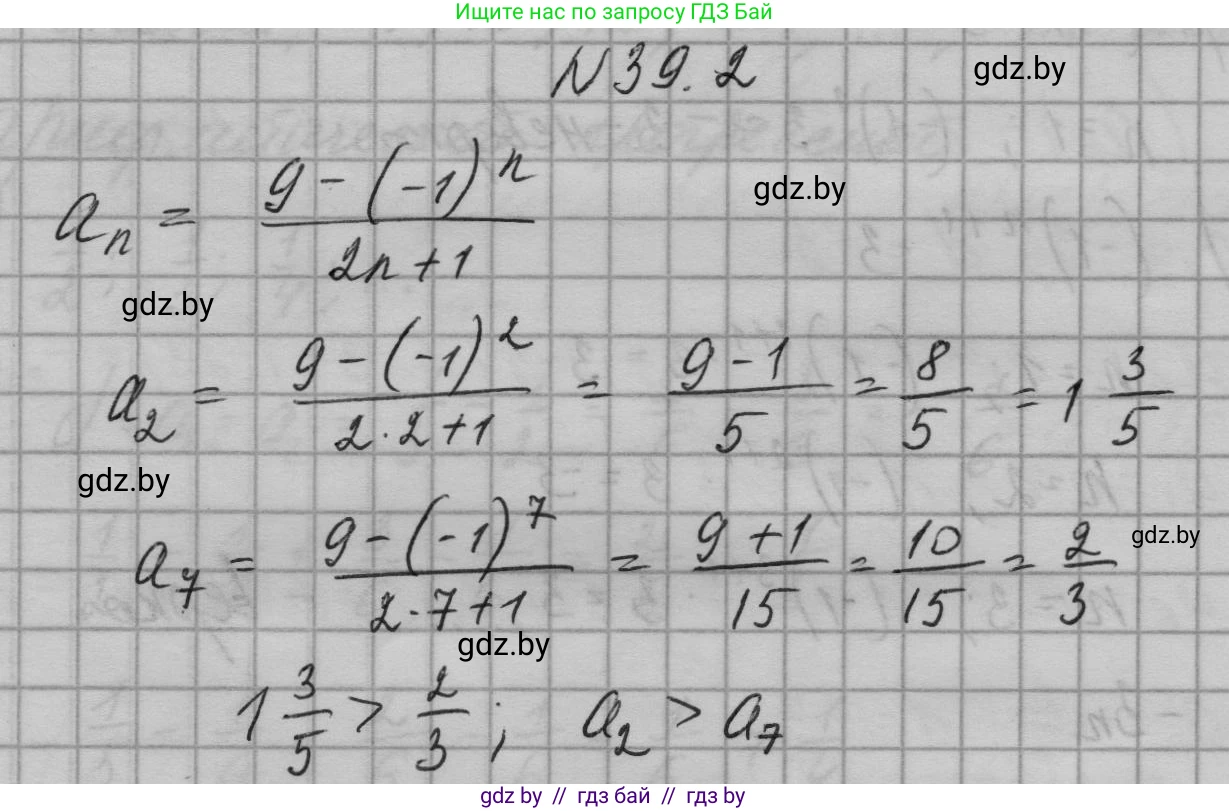 Ищите нас по запросу ГДЗ Бай
N 39. 2
gdz.by
aₙ = (9 - (-1)ⁿ)/(2n + 1)
gdz.by
gdz.by
a₂ = (9 - (-1)²)/(2 · 2 + 1) = (9 - 1)/5 = 8/5 = 1 3/5
gdz.by
a₇ = (9 - (-1)⁷)/(2 · 7 + 1) = (9 + 1)/15 = 10/15 = 2/3
gdz.by
gdz.by
1 3/5 > 2/3 ; a₂ > a₇
gdz.by // гдз бай // gdz.by